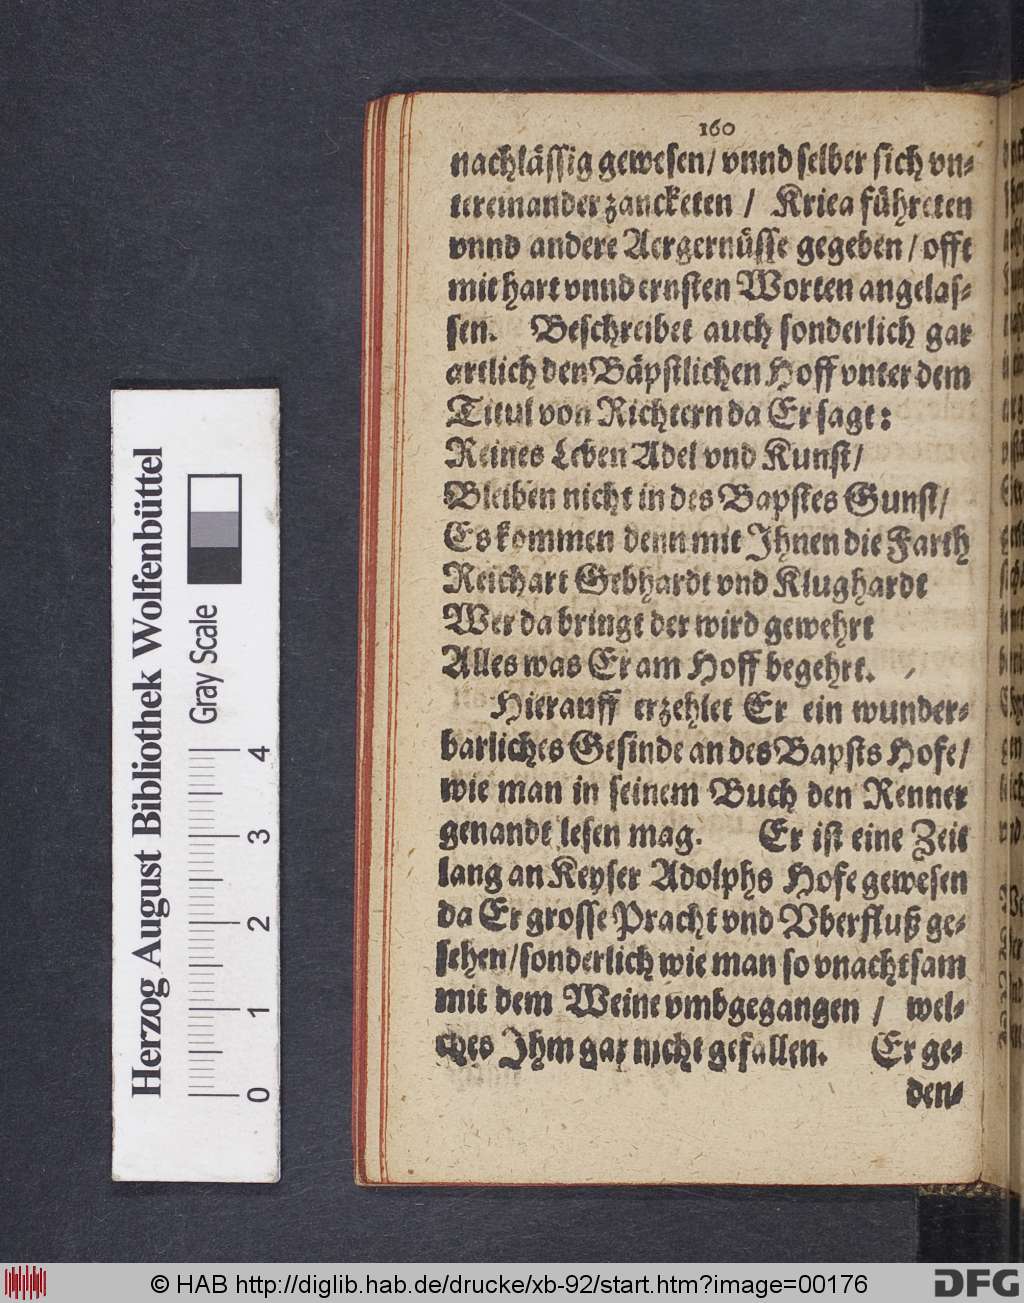 160
nachlässig gewesen / vnnd selber sich vn-
tereinander zancketen / Krieg führeten
vnnd andere Aergernüsse gegeben / offt
mit hart vnnd ernsten Worten angelas-
sen. Beschreibet auch sonderlich gar
artlich den Bäpstlichen Hoff vnter dem
Titul von Richtern da Er sagt:
Reines Leben Adel vnd Kunst /
Bleiben nicht in des Bapstes Gunst /
Es kommen denn mit Ihnen die Farth
Reichart Gebhardt vnd Klughardt
Wer da bringt der wird gewehrt
Alles was Er am Hoff begehrt.
Hierauff erzehlet Er ein wunder-
barliches Gesinde an des Bapsts Hofe /
wie man in seinem Buch den Renner
genandt lesen mag. Er ist eine Zeit
lang an Keyser Adolphs Hofe gewesen
da Er grosse Pracht vnd Vberfluß ge-
sehen / sonderlich wie man so vnachtsam
mit dem Weine vmbgegangen / wel-
ches Ihm gar nicht gefallen. Er ge-
den-
Herzog August Bibliothek Wolfenbüttel
Gray Scale
0 1 2 3 4
© HAB http://diglib.hab.de/drucke/xb-92/start.htm?image=00176
DFG